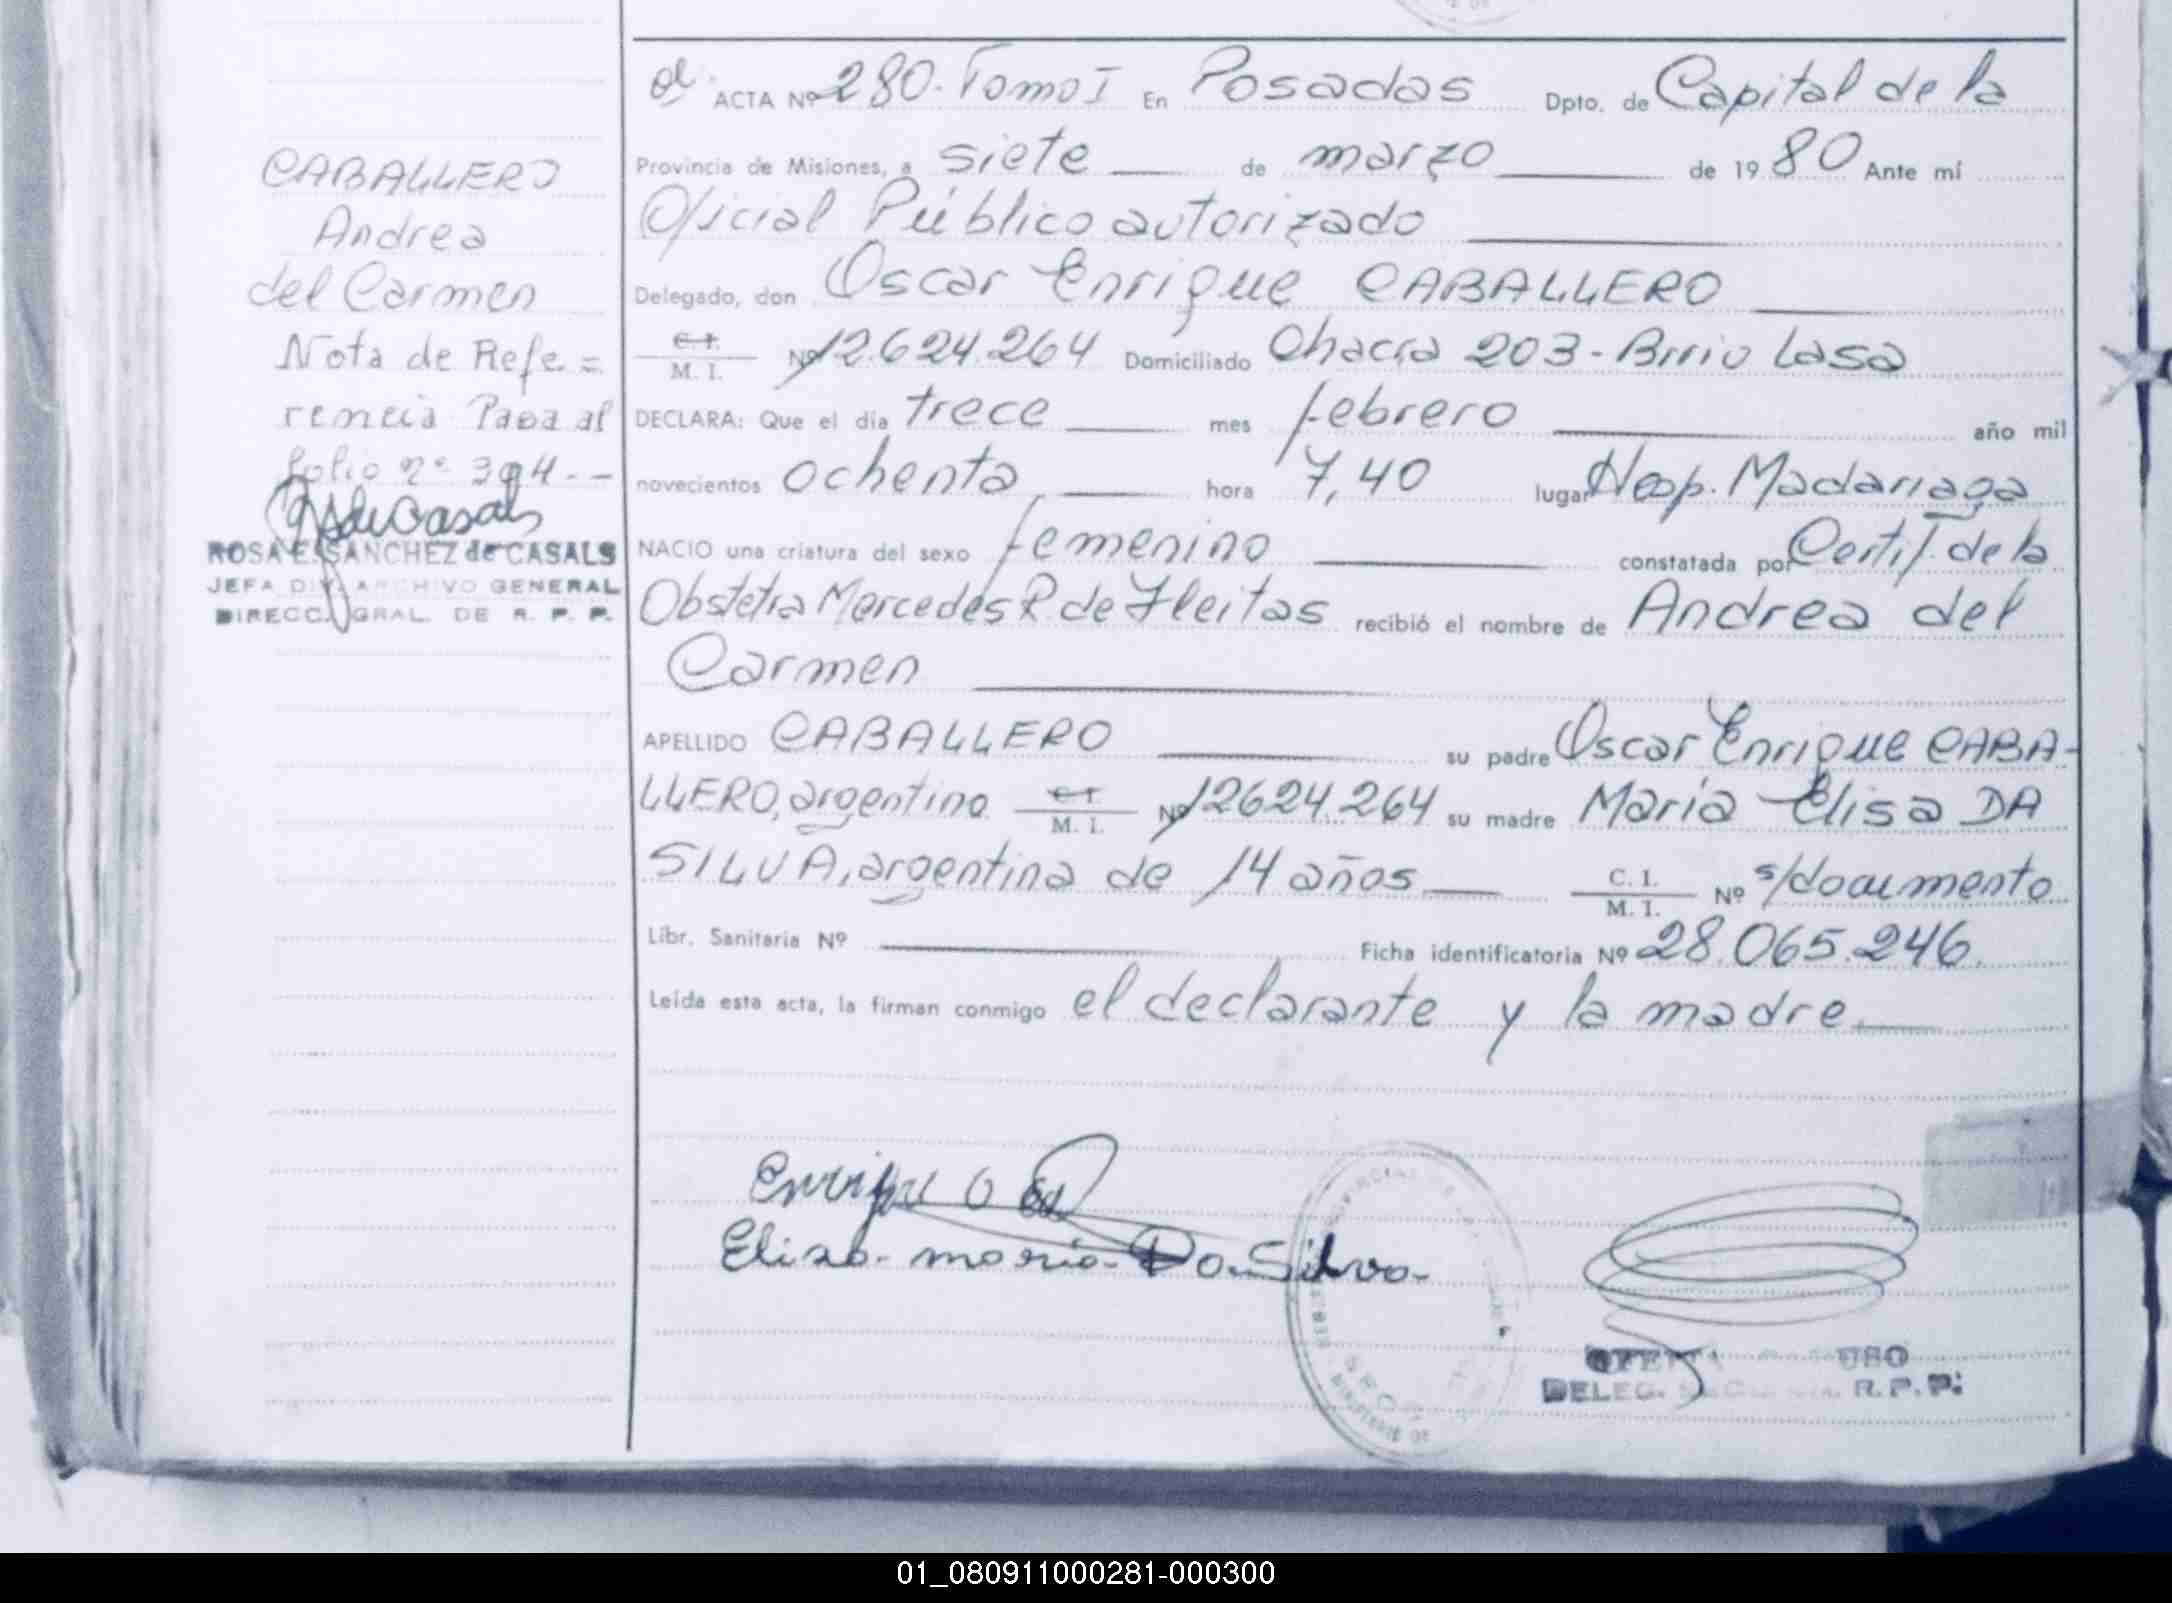 ACTA Nº 280. Tomo I En Posadas Dpto. de Capital de la
Provincia de Misiones, a siete de marzo de 1980 Ante mí
Oficial Público autorizado
Delegado, don Oscar Enrique CABALLERO
C.I. M. I. Nº 12.624.264 Domiciliado Chacra 203 - Brrio Lasa
DECLARA: Que el día trece mes febrero año mil
novecientos ochenta, hora 7,40 lugar Hosp. Madariaga
NACIO una criatura del sexo femenino constatada por Certif. de la
Obstetra Mercedes R. de Fleitas recibió el nombre de Andrea del
Carmen
APELLIDO CABALLERO su padre Oscar Enrique CABA-
LLERO, argentino C.I. M. I. Nº 12624.264 su madre María Elisa DA
SILVA, argentina de 14 años C. I. M. I. Nº s/documento
Libr. Sanitaria Nº Ficha identificatoria Nº 28.065.246.
Leída esta acta, la firman conmigo el declarante y la madre.
CABALLERO
Andrea
del Carmen
Nota de Refe=
rencia Pasa al
folio nº 394.--
ROSA E. SANCHEZ de CASALS
JEFA DIV. ARCHIVO GENERAL
DIRECC. GRAL. DE R. P. P.
Enrique O
Elisa- maria- Da-Silva-
DELEG. R.P.P.
01_080911000281-000300